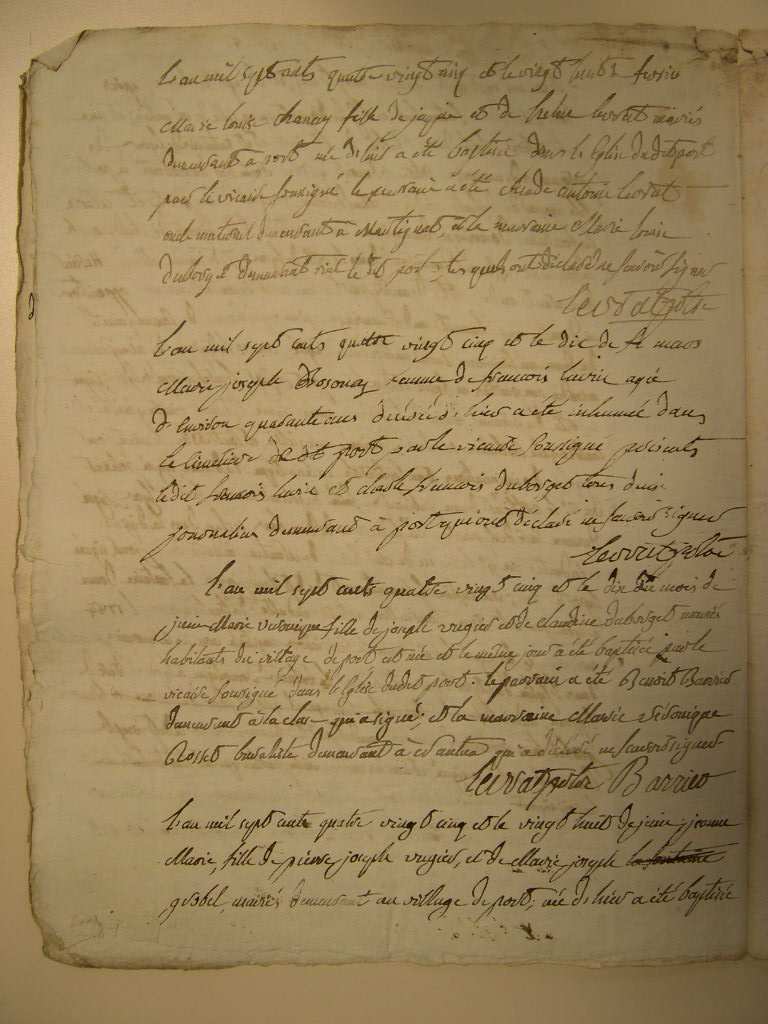 L'an mil sept cents quatre vingt cinq et le vingt huit fevrier
Marie louise fille de et de helene levrat mariés
demeurant a port née de hier a été baptisée dans l'Eglise du dit port
par le vicaire soussigné le parrain a été antoine levrat
oncle maternel demeurant a Martignat, et la marraine Marie louise
duborget demeurant au dit port; les quels ont déclaré ne savoir signer
Levrat
L'an mil sept cents quatre vingt cinq et le dix de mars
Marie joseph femme de francois agée
d'environ quarante ans décédée d'hier a été inhumée dans
le cimetiere du dit port par le vicaire soussigné présents
le dit francois et claude francois duborget tous deux
journaliers demeurant à port qui ont déclaré ne savoir signer
Levrat
L'an mil sept cents quatre vingt cinq et le dix du mois de
juin Marie véronique fille de joseph et de claudine duborget mariés
habitants du village de port est née et le même jour a été baptisée par le
vicaire soussigné dans l'Eglise du dit port. le parrain a été Benoit Barrieo
demeurant à la cluse qui a signé; et la marraine Marie véronique
Rosset demeurant à nantua qui a déclaré ne savoir signer
Levrat Barrieo
L'an mil sept cents quatre vingt cinq et le vingt huit de juin jeanne
Marie, fille de pierre joseph, et de Marie joseph la fontaine
gobel, mariés demeurant au village de port, née de hier a été baptisée